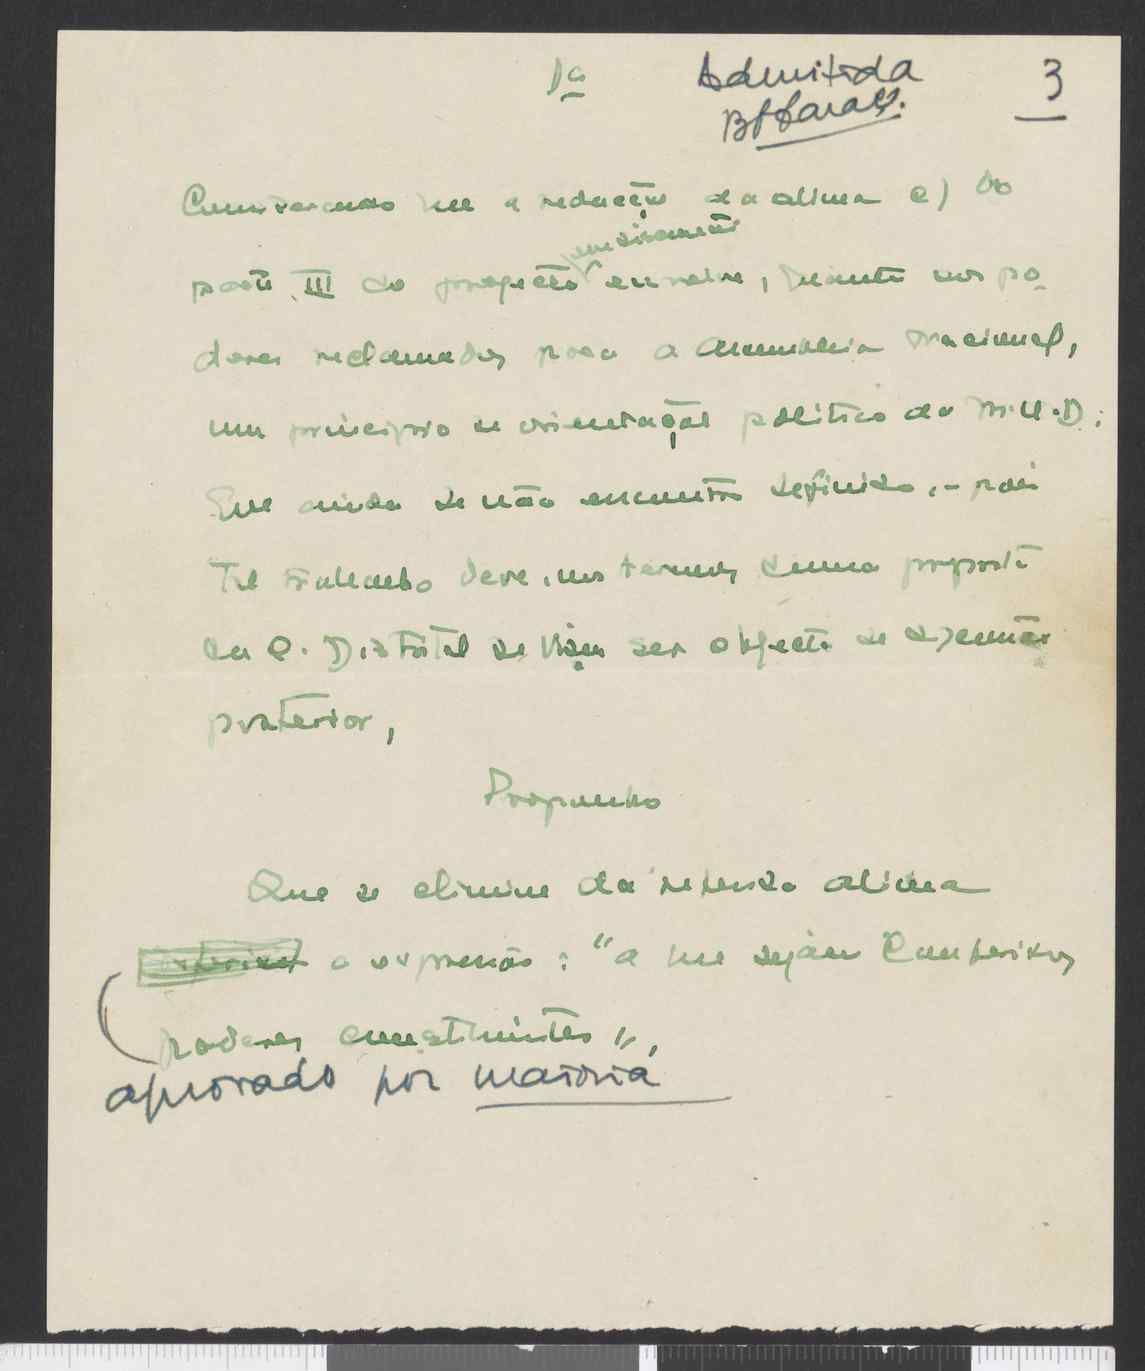 1ª
Admitida
3
Considerando que a redacção da alinea e) do
ponto III do projecto
envolve, quanto aos po-
deres reclamados para a Assembleia Nacional,
um principio de orientação politica do M.U.D.
Que ainda se não encontra definido, - pois
Tal trabalho deve, nos termos duma proposta
da C. Distrital de Viseu ser objecto de discussão
posterior,
Proponho
Que se elimine da referida alinea
a expressão: "a que sejam conferidos
poderes constituintes",
aprovado por maioria